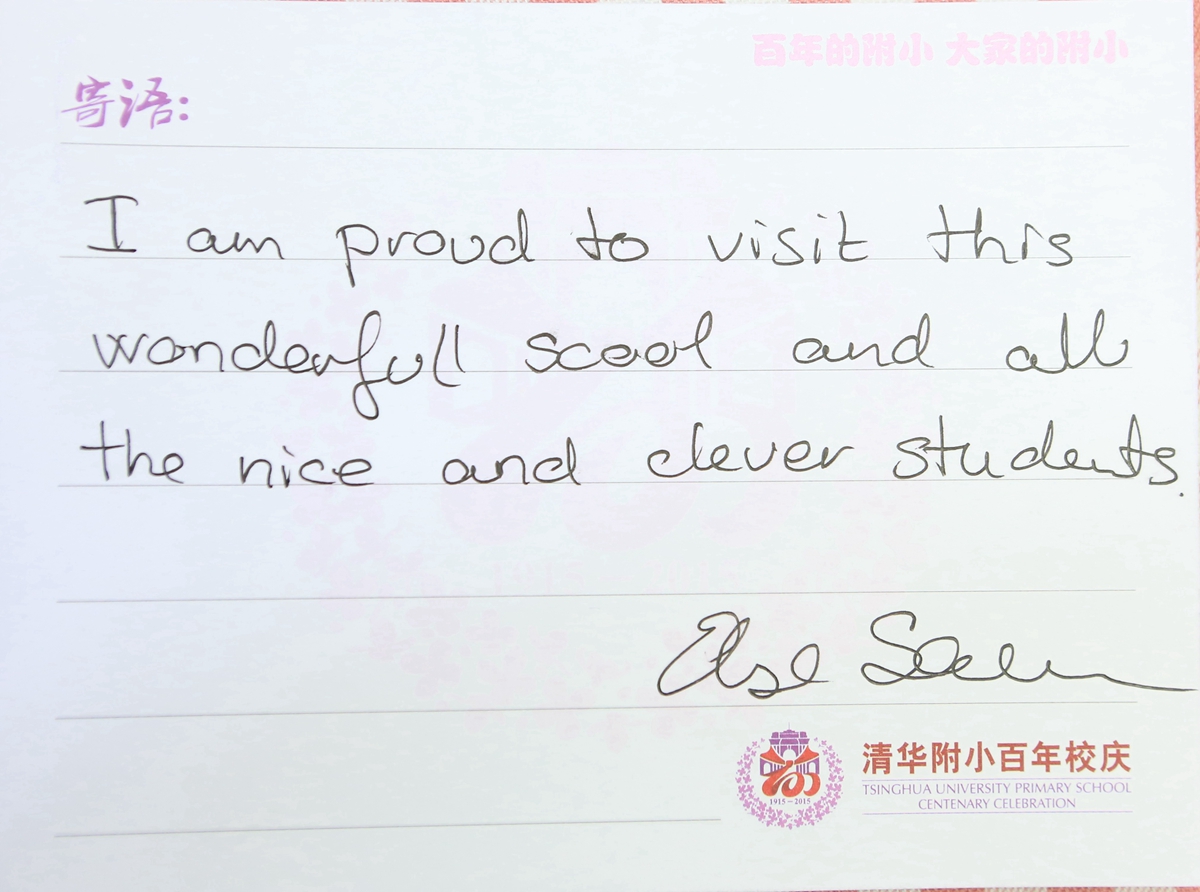 百年的附小 大家的附小
寄语:
I am proud to visit this
wonderfull scool and all
the nice and clever students.
Else
清华附小百年校庆
TSINGHUA UNIVERSITY PRIMARY SCHOOL
CENTENARY CELEBRATION
1915-2015